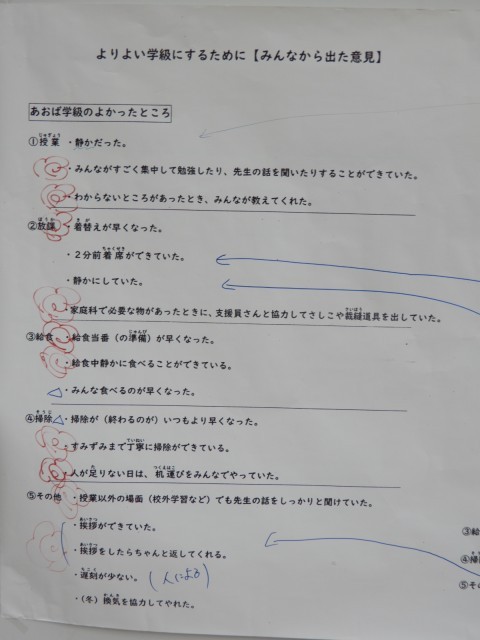 よりよい学級にするために【みんなから出た意見】
あおば学級のよかったところ
①授業 ・静かだった。
・みんながすごく集中して勉強したり、先生の話を聞いたりすることができていた。
・わからないところがあったとき、みんなが教えてくれた。
②放課 ・着替えが早くなった。
・2分前着席ができていた。
・静かにしていた。
・家庭科で必要な物があったときに、支援員さんと協力してさしこや裁縫道具を出していた。
③給食 ・給食当番(の準備)が早くなった。
・給食中静かに食べることができている。
・みんな食べるのが早くなった。
④掃除 ・掃除が(終わるのが)いつもより早くなった。
・すみずみまで丁寧に掃除ができている。
・人が足りない日は、机運びをみんなでやっていた。
⑤その他 ・授業以外の場面(校外学習など)でも先生の話をしっかりと聞けていた。
・挨拶ができていた。
・挨拶をしたらちゃんと返してくれる。
・遅刻が少ない。(人による)
・(冬)換気を協力してやれた。
③給
④掃
⑤そ